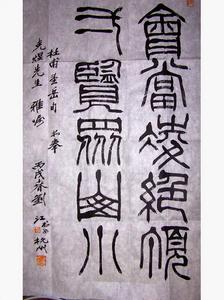 會當凌絕頂
一覽眾山小
杜甫望岳句 書奉
光煜先生 雅屬
丙戌春劉江 於杭州